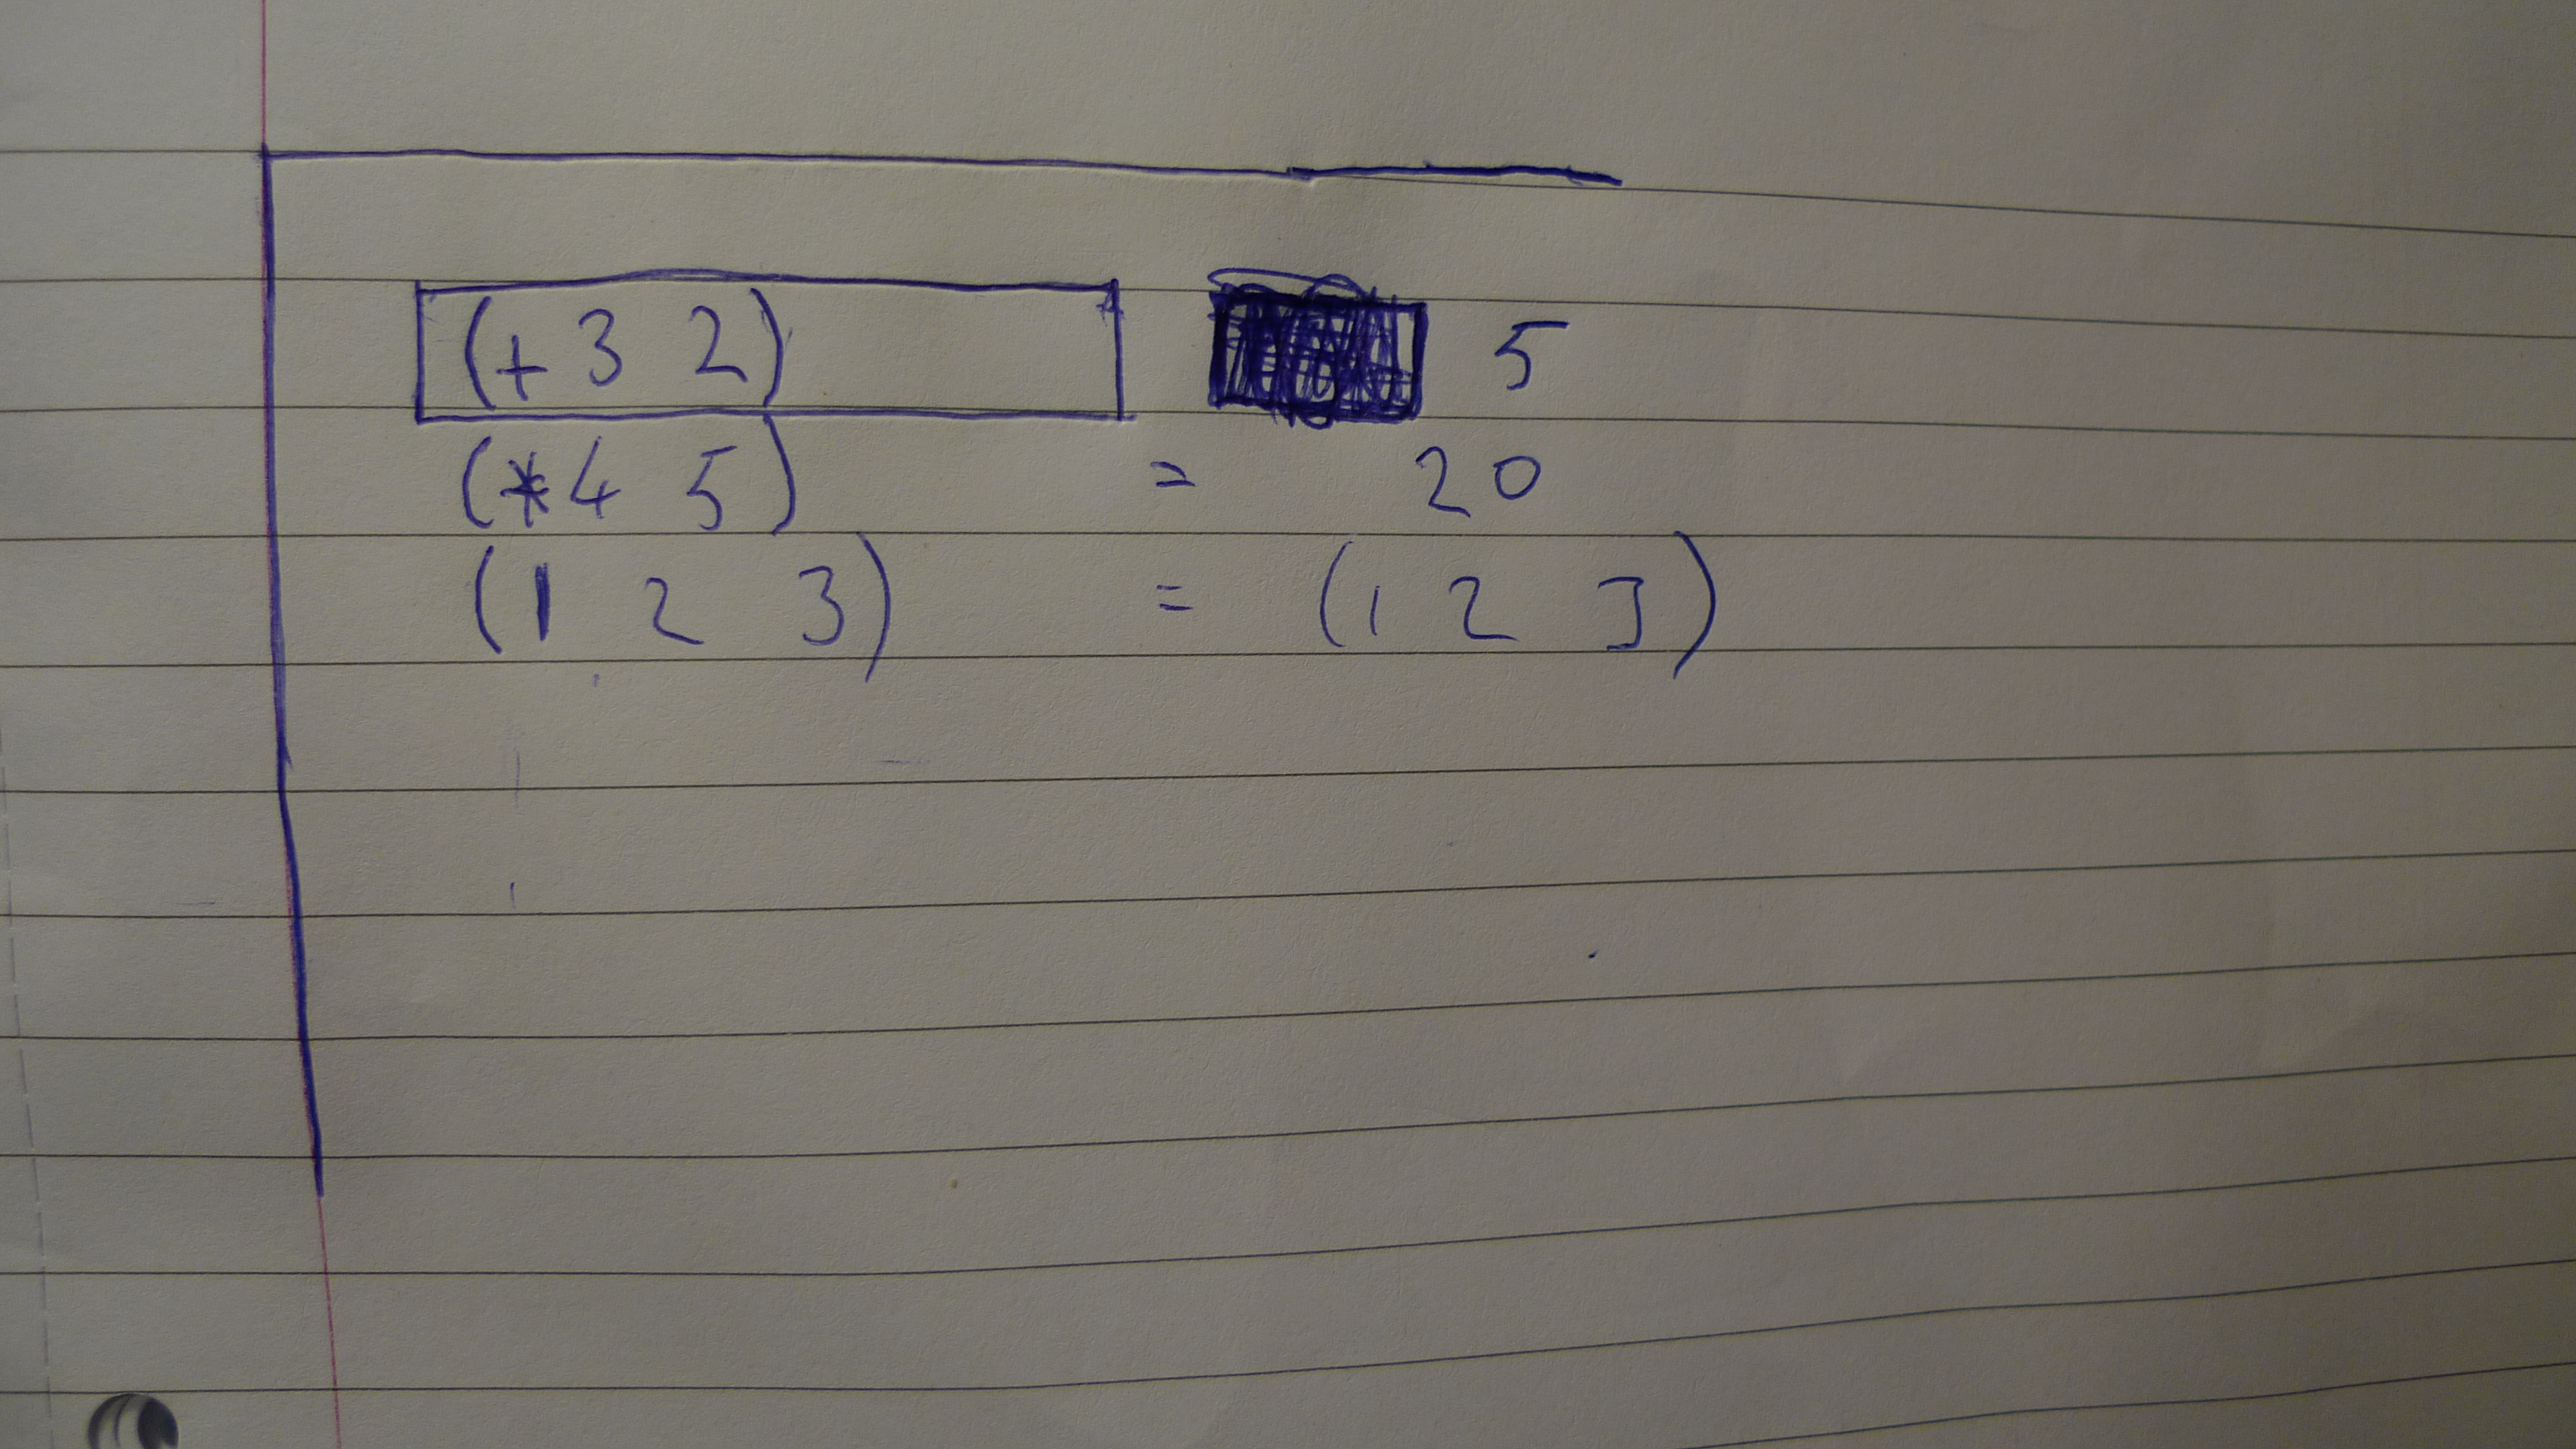 (+ 3 2) 5
(* 4 5) = 20
(1 2 3) = (1 2 3)